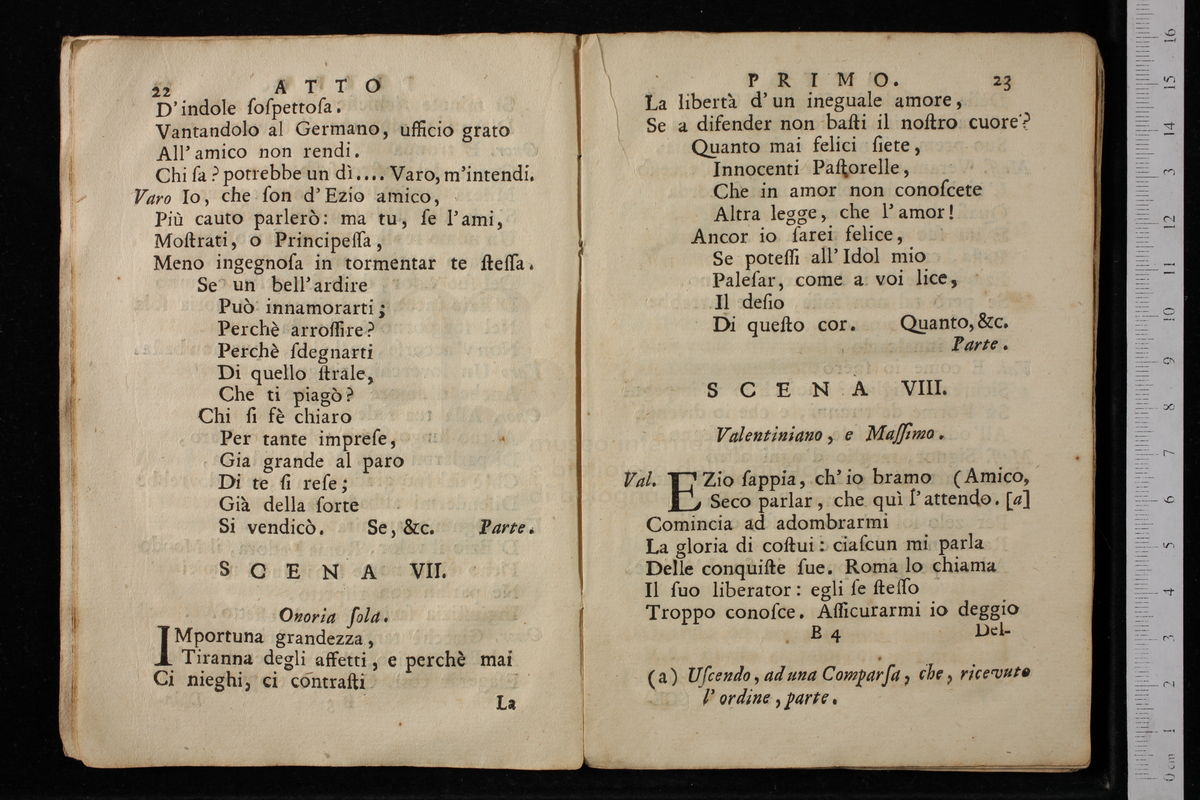 22 ATTO
D'indole ſoſpettoſa.
Vantandolo al Germano, ufficio grato
All'amico non rendi.
Chi ſa? potrebbe un dì.... Varo, m'intendi.
Varo Io, che ſon d'Ezio amico,
Più cauto parlerò: ma tu, ſe l'ami,
Moſtrati, o Principeſſa,
Meno ingegnoſa in tormentar te ſteſſa.
Se un bell'ardire
Può innamorarti;
Perchè arroſſire?
Perchè ſdegnarti
Di quello ſtrale,
Che ti piagò?
Chi ſi fè chiaro
Per tante impreſe,
Gia grande al paro
Di te ſi reſe;
Già della ſorte
Si vendicò. Se, &c. Parte.
SCENA VII.
Onoria ſola.
IMportuna grandezza,
Tiranna degli affetti, e perchè mai
Ci nieghi, ci contraſti
La
PRIMO. 23
La libertà d'un ineguale amore,
Se a difender non baſti il noſtro cuore?
Quanto mai felici ſiete,
Innocenti Paſtorelle,
Che in amor non conoſcete
Altra legge, che l'amor!
Ancor io ſarei felice,
Se poteſſi all'Idol mio
Paleſar, come a voi lice,
Il deſio
Di queſto cor. Quanto, &c.
Parte.
SCENA VIII.
Valentiniano, e Maſſimo.
Val. EZio ſappia, ch'io bramo (Amico,
Seco parlar, che quì l'attendo. [a]
Comincia ad adombrarmi
La gloria di coſtui: ciaſcun mi parla
Delle conquiſte ſue. Roma lo chiama
Il ſuo liberator: egli ſe ſteſſo
Troppo conoſce. Aſſicurarmi io deggio
B 4 Del-
(a) Uſcendo, ad una Comparſa, che, ricevuto
l'ordine, parte.
0 cm 1 2 3 4 5 6 7 8 9 10 11 12 13 14 15 16